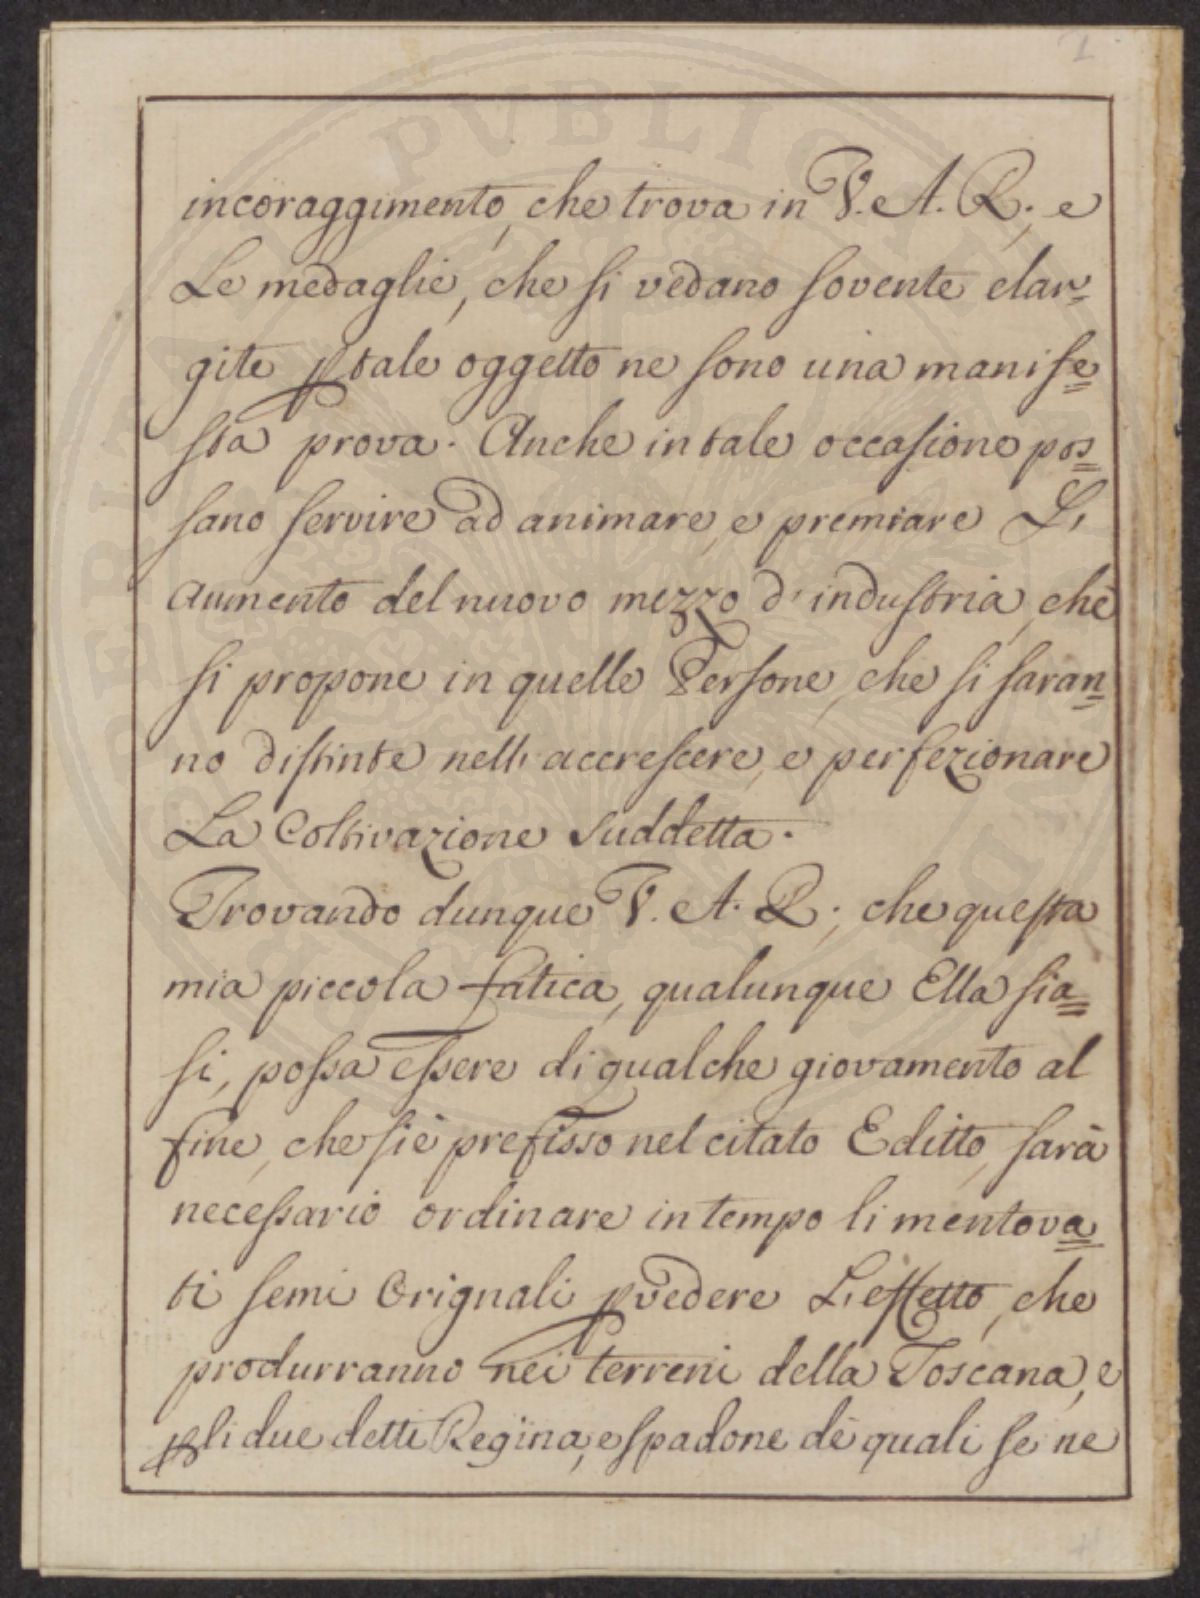 1
incoraggimento, che trova in V. A. R.; e
Le medaglie, che si vedano sovente elar=
gite p tale oggetto ne sono una manife=
sta prova. Anche in tale occasione pos=
sano servire ad animare, e premiare L'
aumento del nuovo mezzo d'industria, che
si propone in quelle Persone, che si saran=
no distinte nell'accrescere, e perfezionare
La Coltivazione suddetta.
Trovando dunque V. A. R.; che questa
mia piccola fatica, qualunque Ella sia=
si, possa essere di qualche giovamento al
fine, che si è prefisso nel citato Editto, sarà
necessario ordinare in tempo li mentova=
ti semi Orignali p vedere L'effetto, che
produrranno nei terreni della Toscana, e
p li due detti Regina, e spadone dè quali se ne